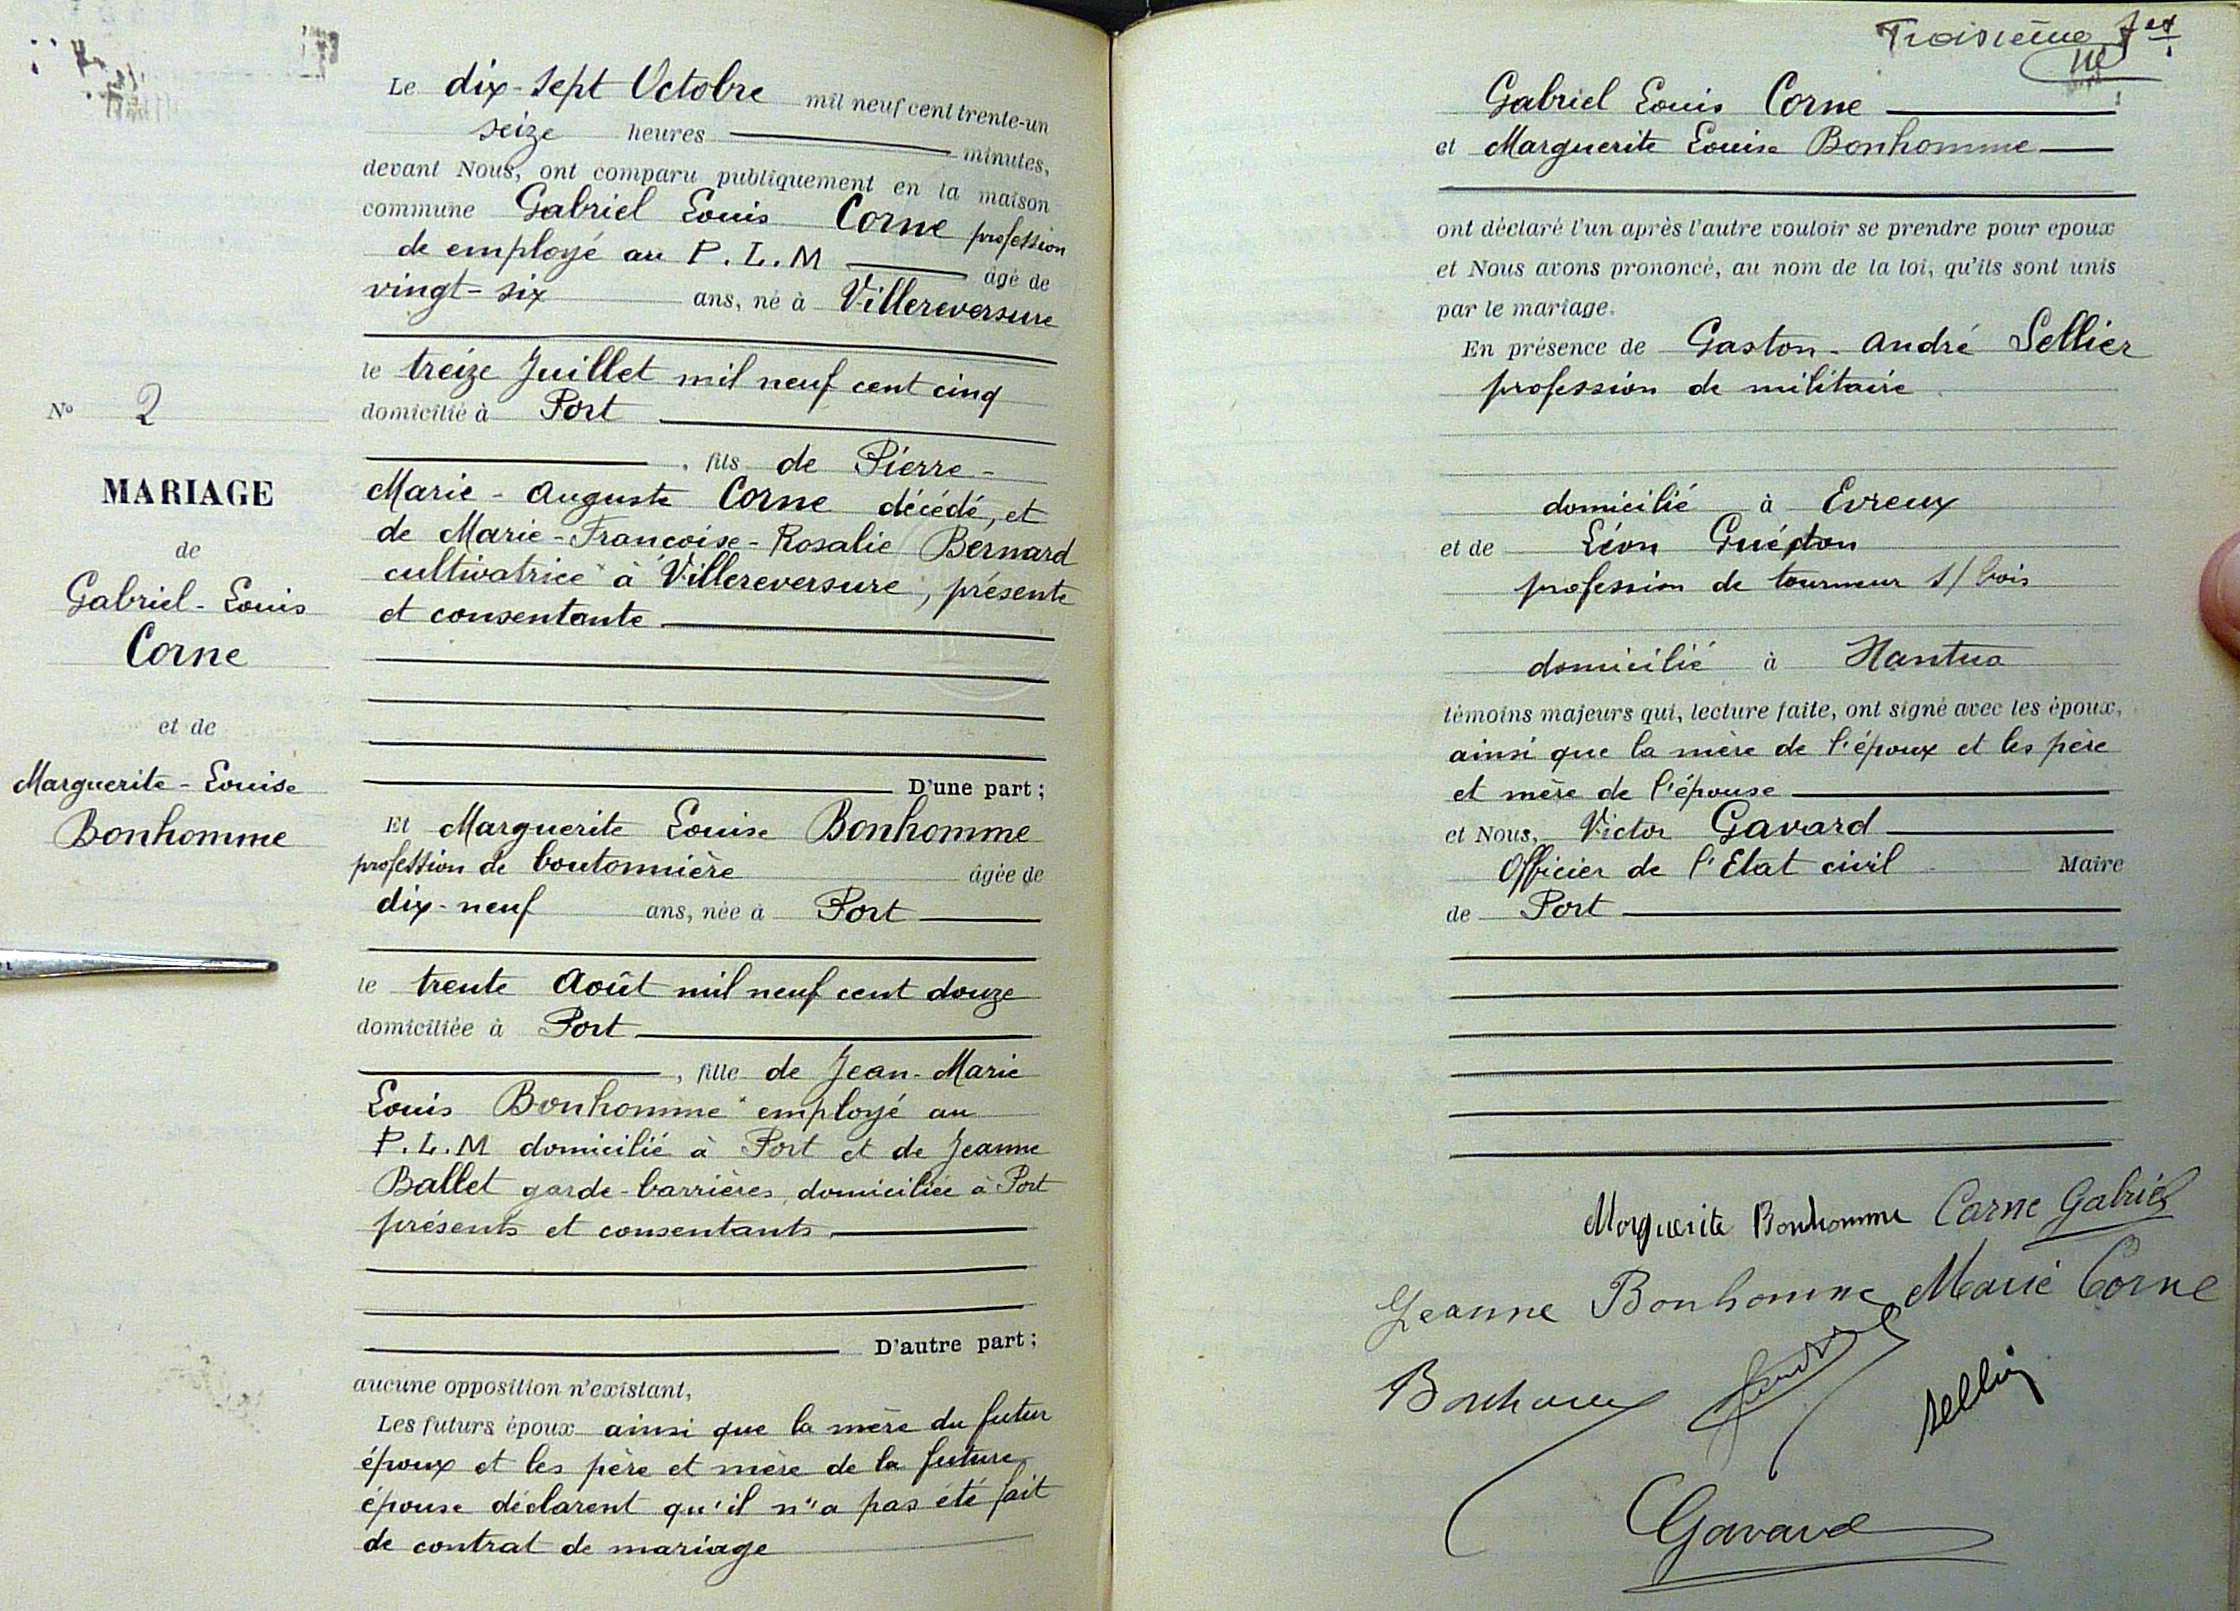 Le dix-sept Octobre mil neuf cent trente-un
seize heures minutes,
devant Nous, ont comparu publiquement en la maison
commune Gabriel Louis Corne profession
de employé au P.L.M âgé de
vingt-six ans, né à Villereversure
le treize Juillet mil neuf cent cinq
domicilié à Port
, fils de Pierre-
Marie-Auguste Corne décédé, et
de Marie-Françoise-Rosalie Bernard
cultivatrice à Villereversure, présente
et consentante
D'une part;
Et Marguerite Louise Bonhomme
profession de boutonnière âgée de
dix-neuf ans, née à Port
le trente Août mil neuf cent douze
domiciliée à Port
, fille de Jean-Marie
Louis Bonhomme employé au
P.L.M domicilié à Port et de Jeanne
Ballet garde-barrières domiciliée à Port
présents et consentants
D'autre part;
aucune opposition n'existant,
Les futurs époux ainsi que la mère du futur
époux et les père et mère de la future
épouse déclarent qu'il n'a pas été fait
de contrat de mariage
N° 2
MARIAGE
de
Gabriel-Louis
Corne
et de
Marguerite-Louise
Bonhomme
Troisième
Gabriel Louis Corne
et Marguerite Louise Bonhomme
ont déclaré l'un après l'autre vouloir se prendre pour époux
et Nous avons prononcé, au nom de la loi, qu'ils sont unis
par le mariage.
En présence de Gaston-André Sellier
profession de militaire
domicilié à Evreux
et de Léon
profession de tourneur s/ bois
domicilié à Nantua
témoins majeurs qui, lecture faite, ont signé avec les époux,
ainsi que la mère de l'époux et les père
et mère de l'épouse
et Nous, Victor Gavard
Officier de l'Etat civil Maire
de Port
Marguerite Bonhomme Corne Gabriel
Jeanne Bonhomme Marie Corne
Bonhomme
Sellier
Gavard